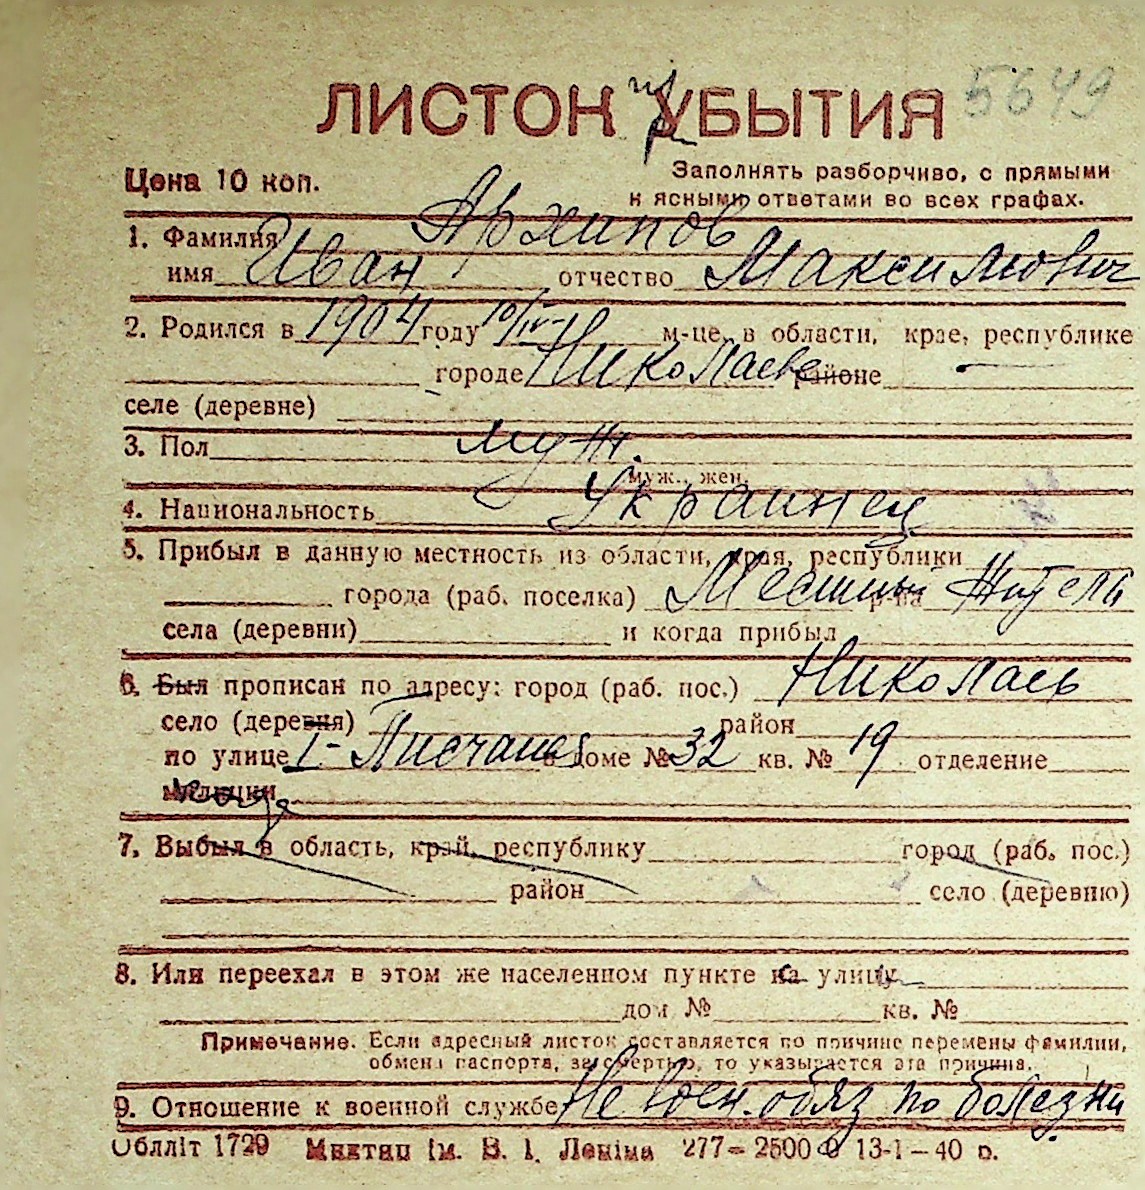 5649
ЛИСТОК УБЫТИЯ
при
Цена 10 коп.
Заполнять разборчиво, с прямыми
и ясными ответами во всех графах.
1. Фамилия Архипов
имя Иван отчество Максимович
2. Родился в 1904 году 10/IV- м-це, в области, крае, республике
городе Николаеве районе —
селе (деревне)
3. Пол муж.
муж., жен.
4. Национальность Украинец
5. Прибыл в данную местность из области, края, республики
города (раб. поселка) Месный р-на Жител
села (деревни) и когда прибыл
6. Был прописан по адресу: город (раб. пос.) Николаев
село (деревня) район
по улице I- Писчаная в доме № 32 кв. № 19 отделение
милиции
7. Выбыл в область, край, республику город (раб. пос.)
район село (деревню)
8. Или переехал в этом же населенном пункте на улицу
дом № кв. №
Примечание. Если адресный листок составляется по причине перемены фамилии,
обмена паспорта, за смертью, то указывается эта причина.
9. Отношение к военной службе Не воен.обяз по болезни
Облліт 1729 Миктип ім. В. І. Леніна 277—2500 13-1—40 р.